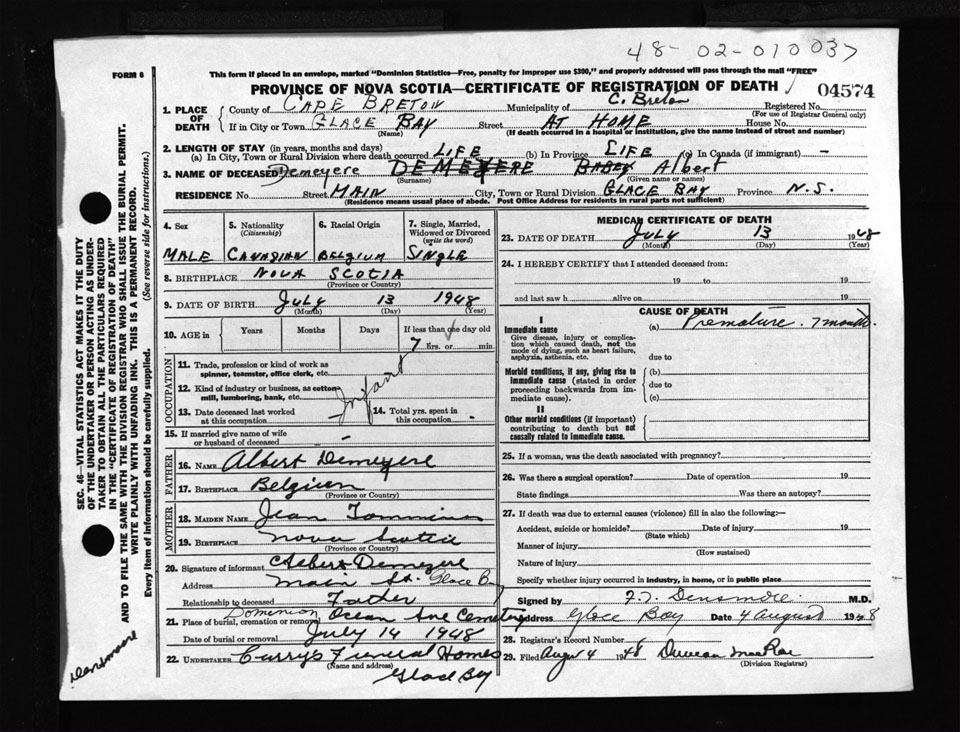 48-02-010037
FORM 6
This form if placed in an envelope, marked "Dominion Statistics—Free, penalty for improper use $300," and properly addressed will pass through the mail "FREE"
PROVINCE OF NOVA SCOTIA—CERTIFICATE OF REGISTRATION OF DEATH
04574
1. PLACE OF DEATH
County of CAPE BRETON Municipality of C. Breton Registered No.
(For use of Registrar General only)
If in City or Town GLACE BAY Street AT HOME House No.
(Name) (If death occurred in a hospital or institution, give the name instead of street and number)
2. LENGTH OF STAY (in years, months and days)
(a) In City, Town or Rural Division where death occurred LIFE (b) In Province LIFE (c) In Canada (if immigrant) —
3. NAME OF DECEASED Demeyere DEMEYERE Albert
(Surname) (Given name or names)
RESIDENCE No. Street MAIN City, Town or Rural Division GLACE BAY Province N.S.
(Residence means usual place of abode. Post Office Address for residents in rural parts not sufficient)
4. Sex 5. Nationality (Citizenship) 6. Racial Origin 7. Single, Married, Widowed or Divorced (write the word)
MALE CANADIAN BELGIUM SINGLE
8. BIRTHPLACE NOVA SCOTIA
(Province or Country)
9. DATE OF BIRTH July 13 1948
(Month) (Day) (Year)
10. AGE in Years Months Days If less than one day old
7 hrs. or min.
OCCUPATION
11. Trade, profession or kind of work as spinner, teamster, office clerk, etc.
12. Kind of industry or business, as cotton mill, lumbering, bank, etc.
Infant
13. Date deceased last worked at this occupation 14. Total yrs. spent in this occupation
15. If married give name of wife or husband of deceased -
FATHER
16. NAME Albert Demeyere
17. BIRTHPLACE Belgium
(Province or Country)
MOTHER
18. MAIDEN NAME Jean
19. BIRTHPLACE Nova Scotia
(Province or Country)
20. Signature of informant Albert Demeyere
Address Main St. Glace B
Relationship to deceased Father
21. Place of burial, cremation or removal Dominion Ocean Ave Cemetery
Date of burial or removal July 14 1948
22. UNDERTAKER Curry's Funeral Homes
(Name and address)
Glace Bay
MEDICAL CERTIFICATE OF DEATH
23. DATE OF DEATH July 13 1948
(Month) (Day) (Year)
24. I HEREBY CERTIFY that I attended deceased from:
19 to 19
and last saw h alive on 19
CAUSE OF DEATH
I
Immediate cause (a) Premature. 7 months.
Give disease, injury or complication which caused death, not the mode of dying, such as heart failure, asphyxia, asthenia, etc.
due to
Morbid conditions, if any, giving rise to immediate cause (stated in order proceeding backwards from immediate cause).
(b)
due to
(c)
II
Other morbid conditions (if important) contributing to death but not causally related to immediate cause.
25. If a woman, was the death associated with pregnancy?
26. Was there a surgical operation? Date of operation 19
State findings Was there an autopsy?
27. If death was due to external causes (violence) fill in also the following:—
Accident, suicide or homicide? Date of injury 19
(State which)
Manner of injury
(How sustained)
Nature of injury
Specify whether injury occurred in industry, in home, or in public place
Signed by F.T. Densmore M.D.
Address Glace Bay Date 4 August 1948
28. Registrar's Record Number
29. Filed Augus 4 1948 Duncan MacRae
(Division Registrar)
SEC. 46—VITAL STATISTICS ACT MAKES IT THE DUTY OF THE UNDERTAKER OR PERSON ACTING AS UNDERTAKER TO OBTAIN ALL THE PARTICULARS REQUIRED IN THE "CERTIFICATE OF REGISTRATION OF DEATH"
AND TO FILE THE SAME WITH THE DIVISION REGISTRAR WHO SHALL ISSUE THE BURIAL PERMIT.
WRITE PLAINLY WITH UNFADING INK. THIS IS A PERMANENT RECORD.
Every item of information should be carefully supplied. (See reverse side for instructions.)
Densmore